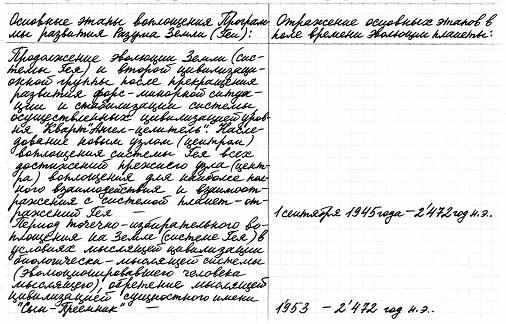 Основные этапы воплощения Програм-
мы развития Разума Земли (Геи):
Отражение основных этапов в
поле времени эволюции планеты:
Продолжение эволюции Земли (сис-
темы Гея) и второй цивилизаци-
онной группы после прекращения
развития форс-минорной ситуа-
ции и стабилизации системы,
осуществленных цивилизацией уров-
ня "Кварт Ангел-целитель". Насле-
дование новым узлом (центром)
воплощения системы Гея всех
достижений прежнего узла (цент-
ра) воплощения для наиболее пол-
ного взаимодействия и взаимоот-
ражения с системой планет-от-
ражений Гея —
1 сентября 1945 года – 2'472 год н.э.
Период точечно-избирательного во-
площения на Земле (системе Гея) в
условиях мыслящей цивилизации
биологически-мыслящей системы
(эволюционировавшего человека
мыслящего), обретение мыслящей
цивилизацией сущностного имени
"Сын-Преемник" —
1953 – 2'472 год н.э.